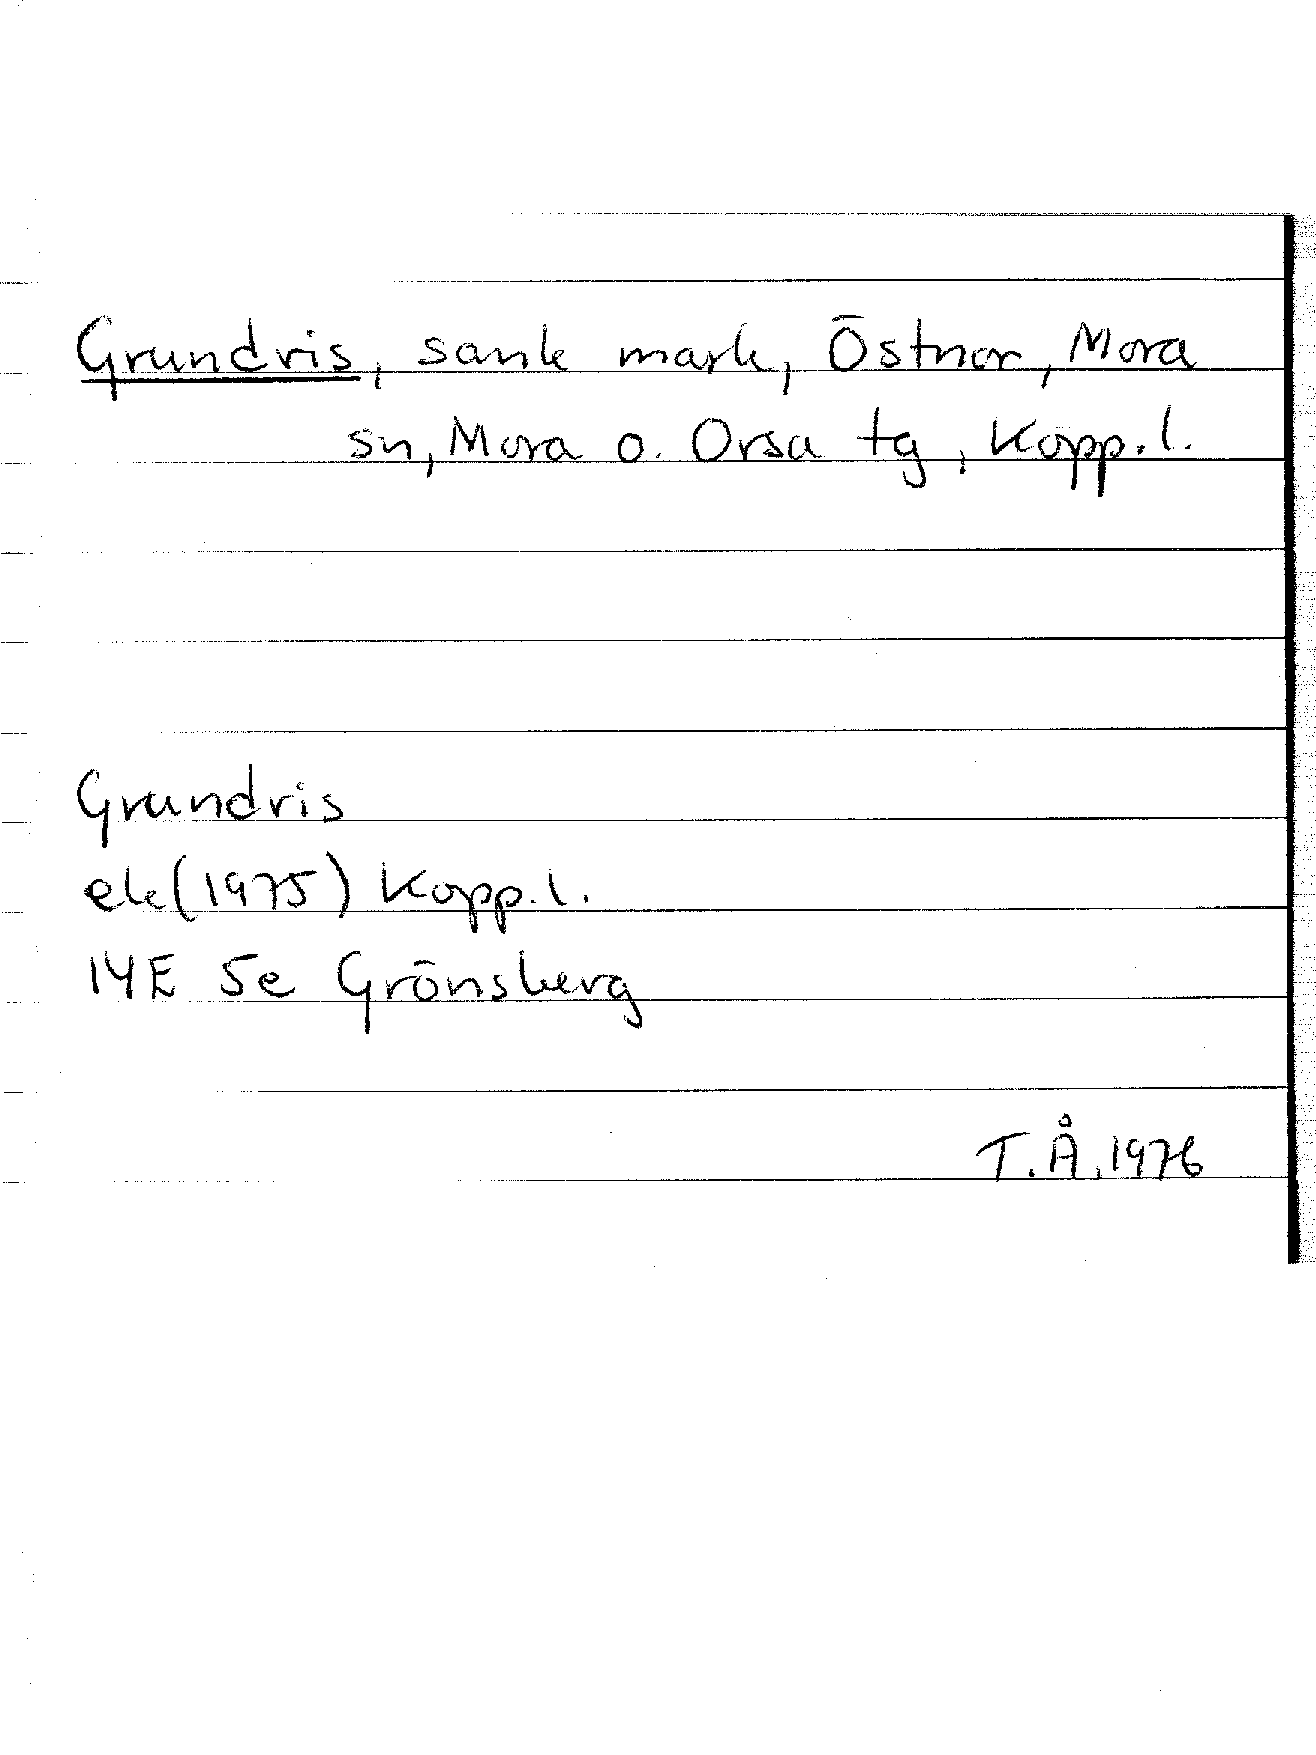 Grundris, sank mark, Östnor, Mora
sn, Mora o. Orsa tg, Kopp. l.
Grundris
ek (1975) Kopp. l.
14E 5e Grönsberg
T. Å, 1976